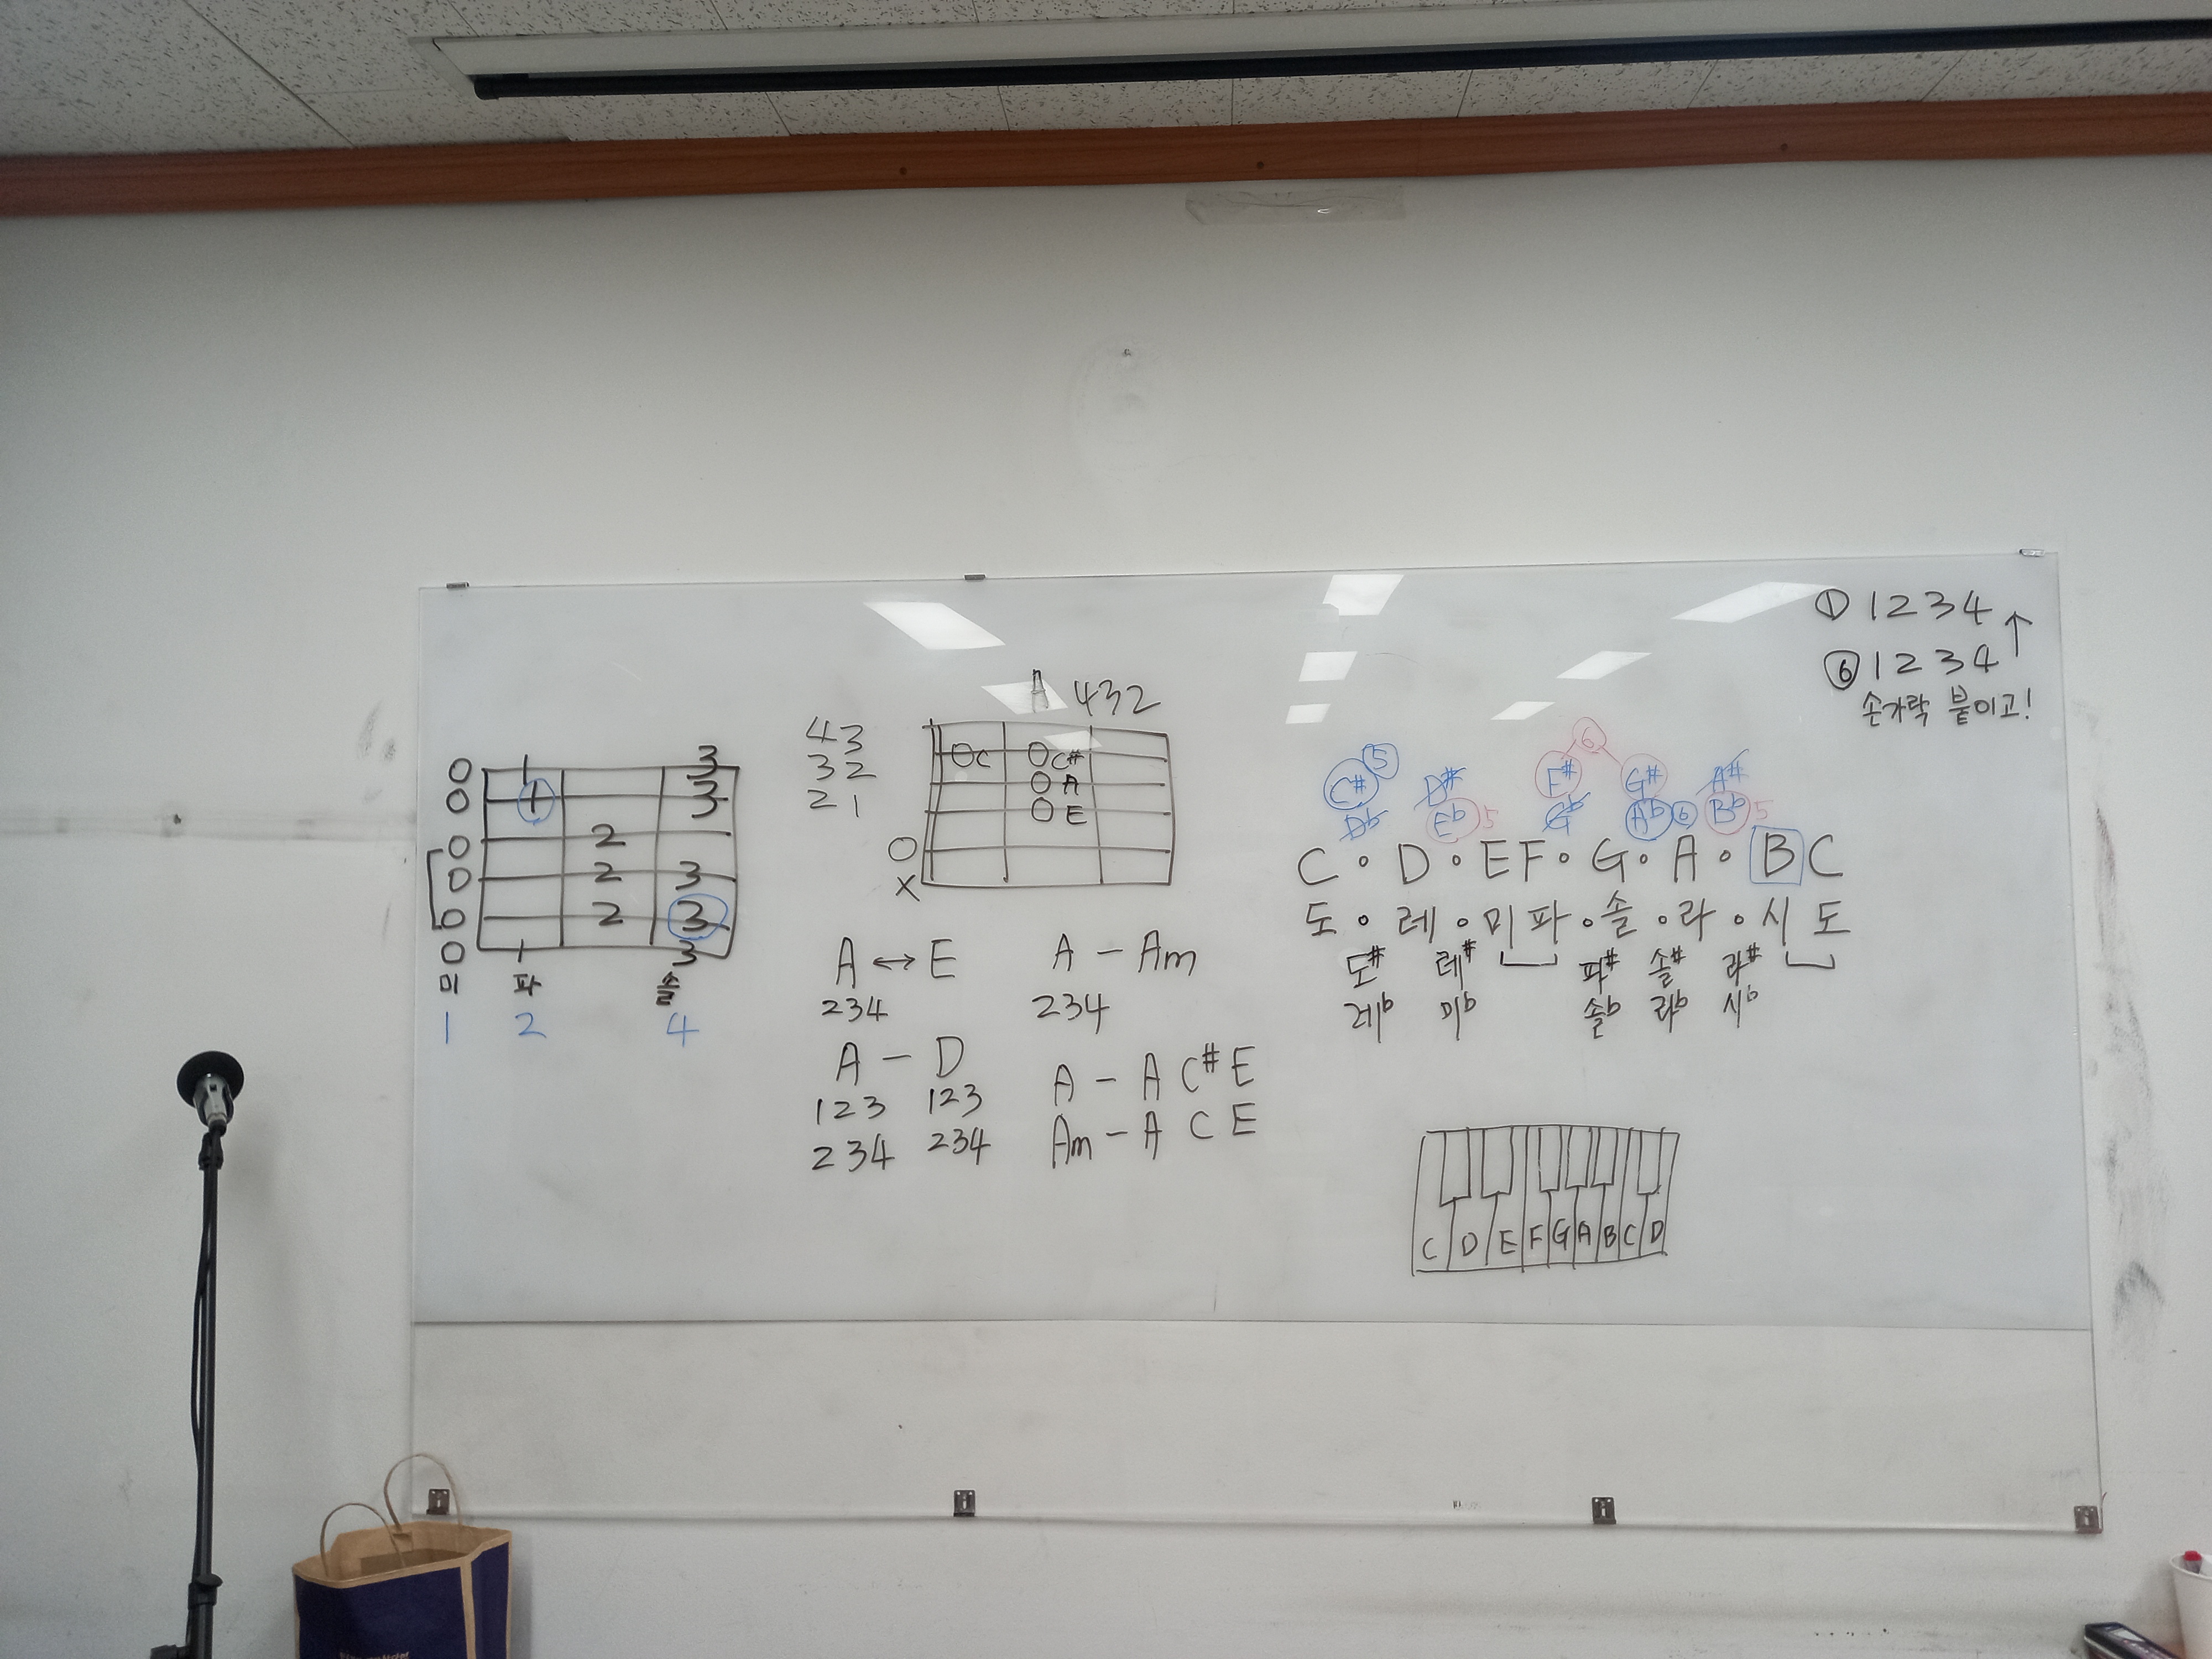 ① 1 2 3 4 ↑
⑥ 1 2 3 4
손가락 붙이고!
0 1 3
0 1 3
0 2
0 2 3
0 2 3
0 1 3
미 파 솔
1 2 4
A 432
43
32
21
O C O C#
O A
O E
O
X
A ↔ E
234
A - D
123 123
234 234
A - Am
234
A - A C# E
Am - A C E
5 6
C# D# F# G# A#
Db Eb 5 G# Ab 6 Bb 5
C • D • E F • G • A • B C
도 • 레 • 미 파 • 솔 • 라 • 시 도
도# 레# 파# 솔# 라#
레b 미b 솔b 라b 시b
C D E F G A B C D